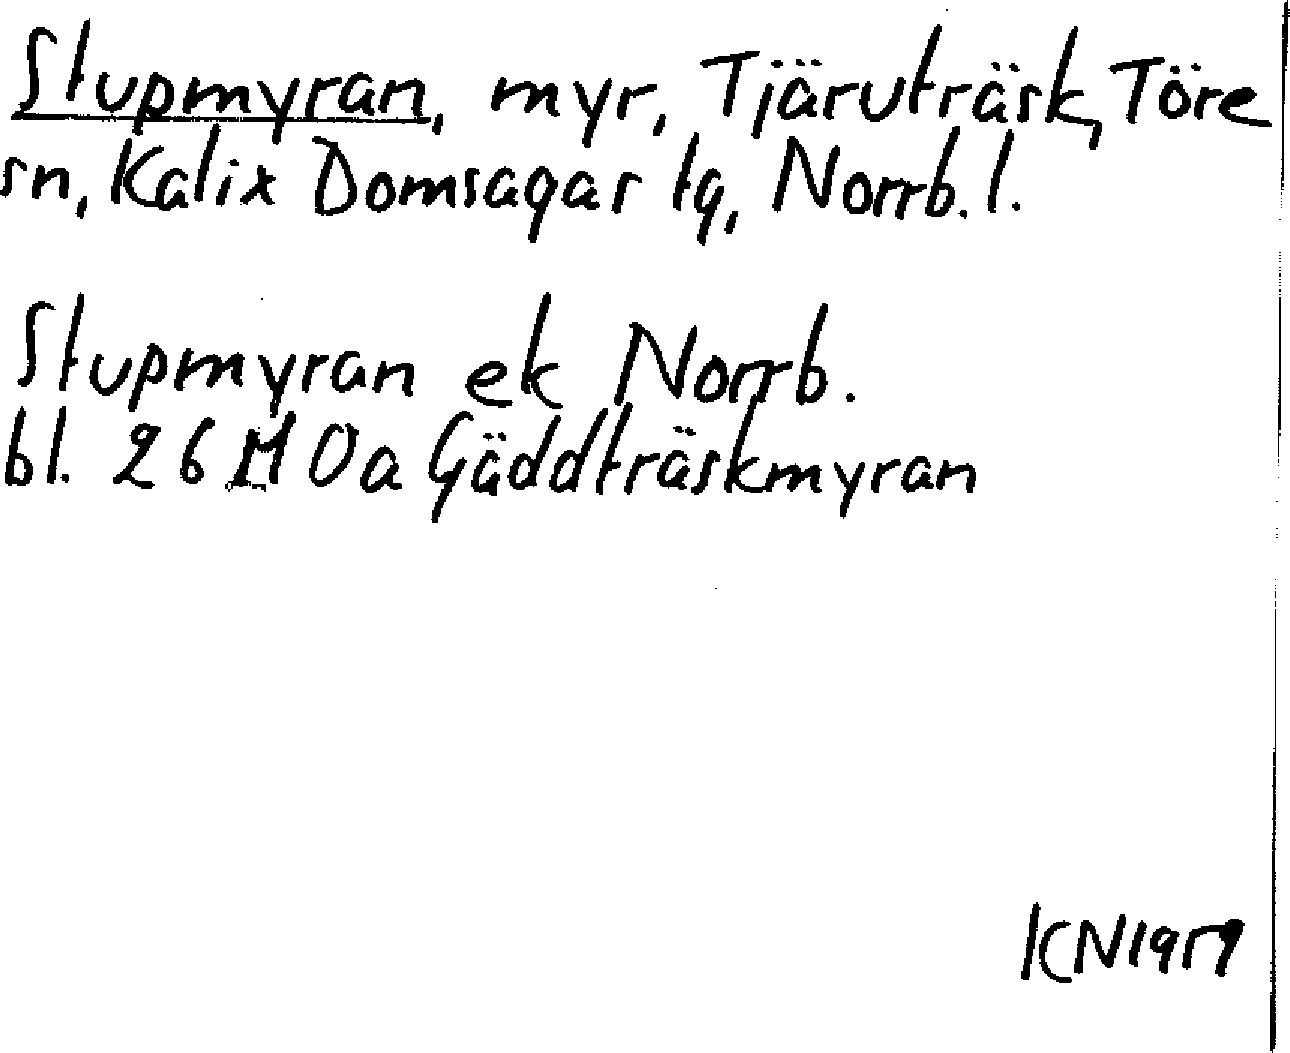 Stupmyran, myr, Tjäruträsk, Töre
sn, Kalix Domsagas tg, Norrb. l.
Stupmyran ek Norrb.
bl. 26 M 0a Gäddträskmyran